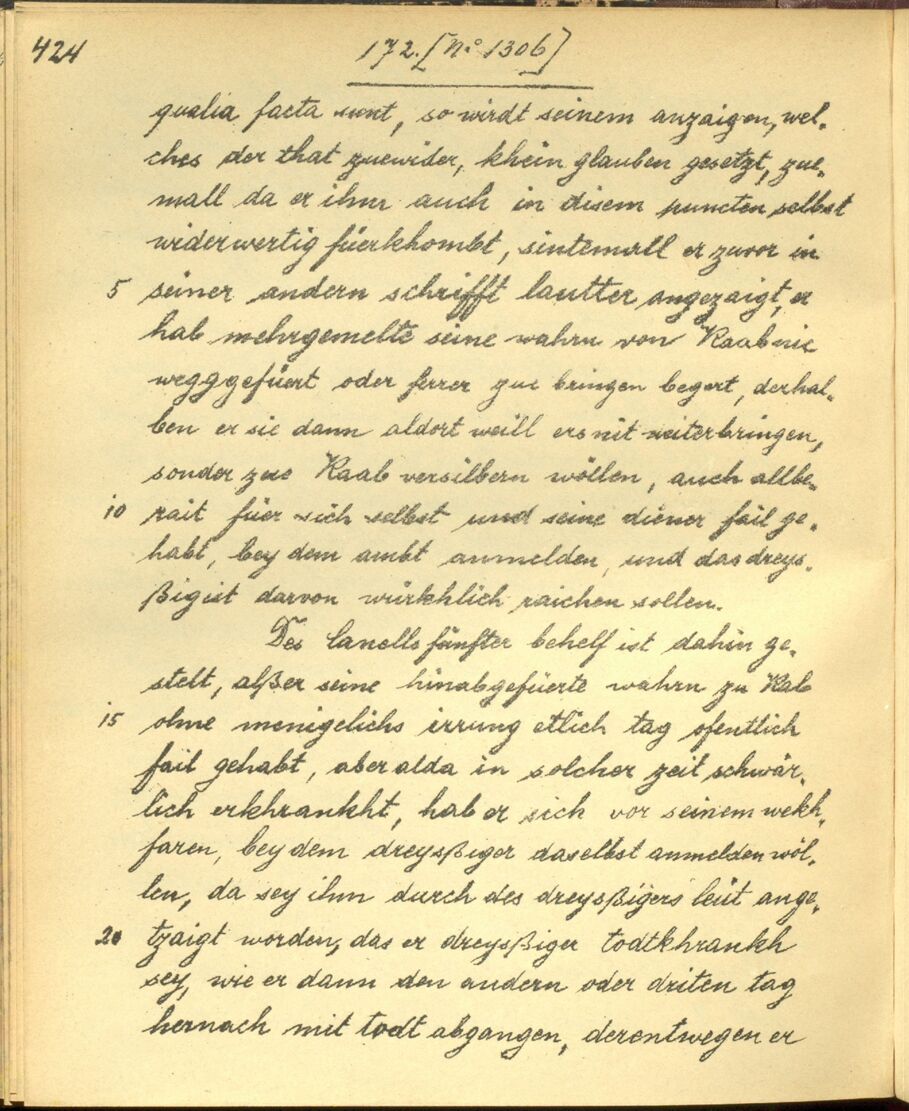 424
172. [No 1306]
qualia facta sunt, so wirdt seinem anzaigen, wel-
ches der that zuewider, khein glauben gesetzt, zue-
mall da er ihm auch in disem puncten selbst
widerwertig füerkhombt, sintemall er zuvor in
5 seiner andern schrifft lautter angezaigt, er
hab mehrgemelte seine wahrn von Raab nie
wegggefüert oder ferrer zue bringen begert, derhal-
ben er sie dann aldort weill ers nit weiterbringen,
sonder zue Raab versilbern wöllen, auch allbe-
10 rait füer sich selbst und seine diener fail ge-
habt, bey dem ambt anmelden, und das dreys-
ßigist darvon würkhlich raichen sollen.
Des Canells fünfter behelf ist dahin ge-
stelt, alß er seine hinabgefüerte wahrn zu Rab
15 ohne menigelichs irrung etlich tag ofentlich
fail gehabt, aber alda in solcher zeit schwär-
lich erkhrankht, hab er sich vor seinem wekh-
faren, bey dem dreysßiger daselbst anmelden wöl-
len, da sey ihm durch des dreysßigers leüt ange-
20 tzaigt worden, das er dreysßiger todtkhrankh
sey, wie er dann den andern oder driten tag
hernach mit todt abgangen, derentwegen er